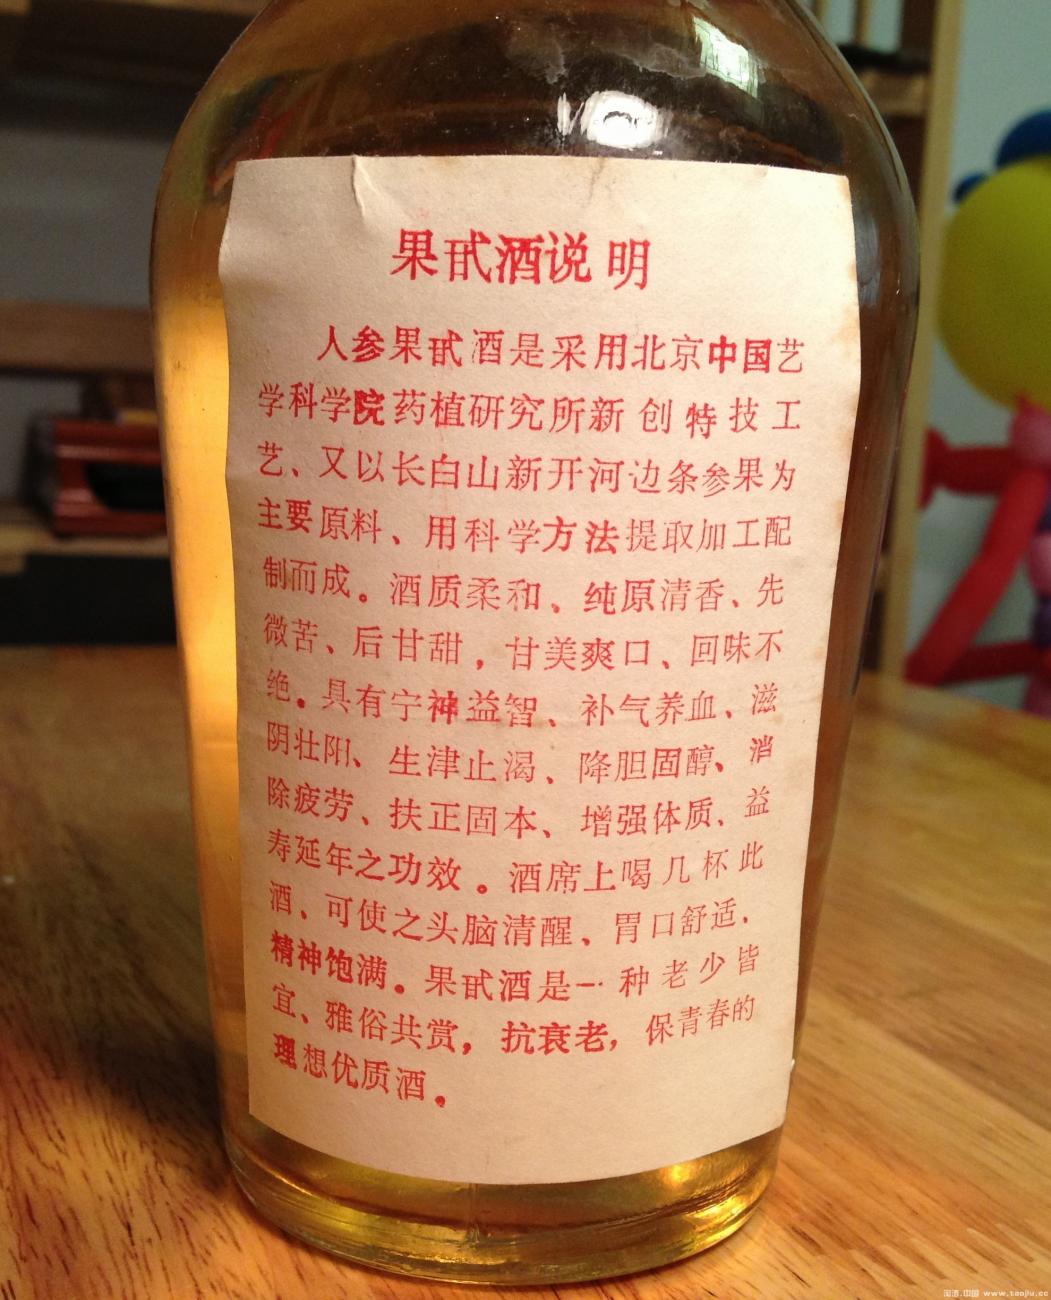 果甙酒说明
人参果甙酒是采用北京中国艺
学科学院药植研究所新创特技工
艺、又以长白山新开河边条参果为
主要原料、用科学方法提取加工配
制而成。酒质柔和、纯原清香、先
微苦、后甘甜，甘美爽口、回味不
绝。具有宁神益智、补气养血、滋
阴壮阳、生津止渴、降胆固醇、消
除疲劳、扶正固本、增强体质、益
寿延年之功效。酒席上喝几杯此
酒、可使之头脑清醒、胃口舒适.
精神饱满。果甙酒是一种老少皆
宜、雅俗共赏，抗衰老，保青春的
理想优质酒。
淘酒.中国 www.taojiu.cc